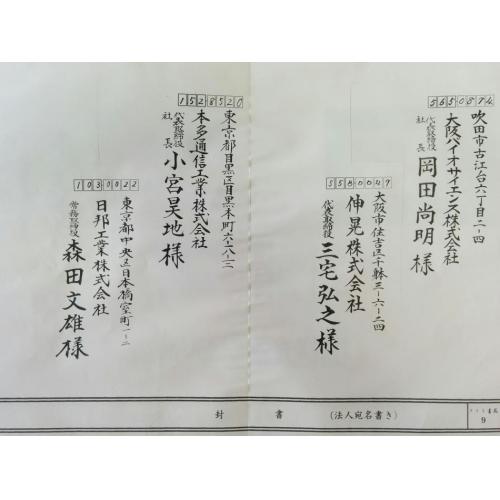 5650874
吹田市古江台六丁目二-四
大阪バイオサイエンス株式会社
代表取締役
社長
岡田尚明様
5580047
大阪市住吉区千躰三-六-二四
伸晃株式会社
代表取締役
三宅弘之様
1528520
東京都目黒区目黒本町六-六-二
本多通信工業株式会社
代表取締役
社長
小宮昊地様
1030022
東京都中央区日本橋室町一-二
日邦工業株式会社
常務取締役
森田文雄様
封書
(法人宛名書き)
9